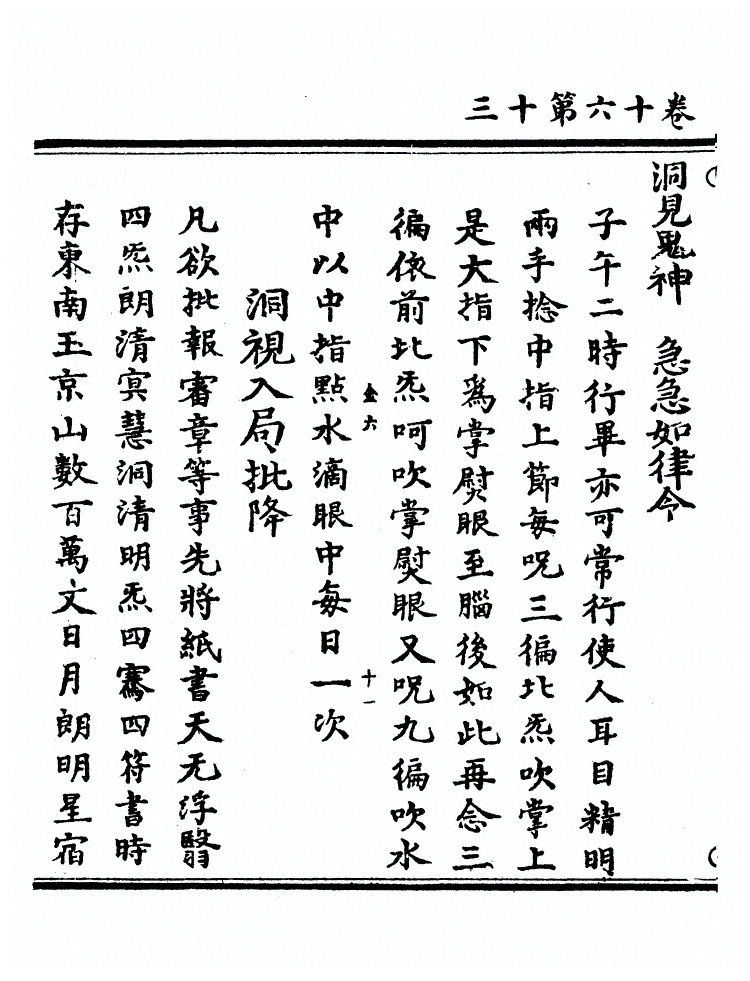 卷十六第十三
洞見鬼神　急急如律令
子午二時行畢亦可常行使人耳目精明
兩手捻中指上節每呪三徧北炁吹掌上
是大指下為掌熨眼至腦後如此再念三
徧依前北炁呵吹掌熨眼又呪九徧吹水
六　十一
中以中指點水滴眼中每日一次
洞視入局批降
凡欲批報審章等事先將紙書天无浮翳
四炁朗清冥慧洞清明炁四騫四符書時
存東南玉京山數百萬文日月朗明星宿